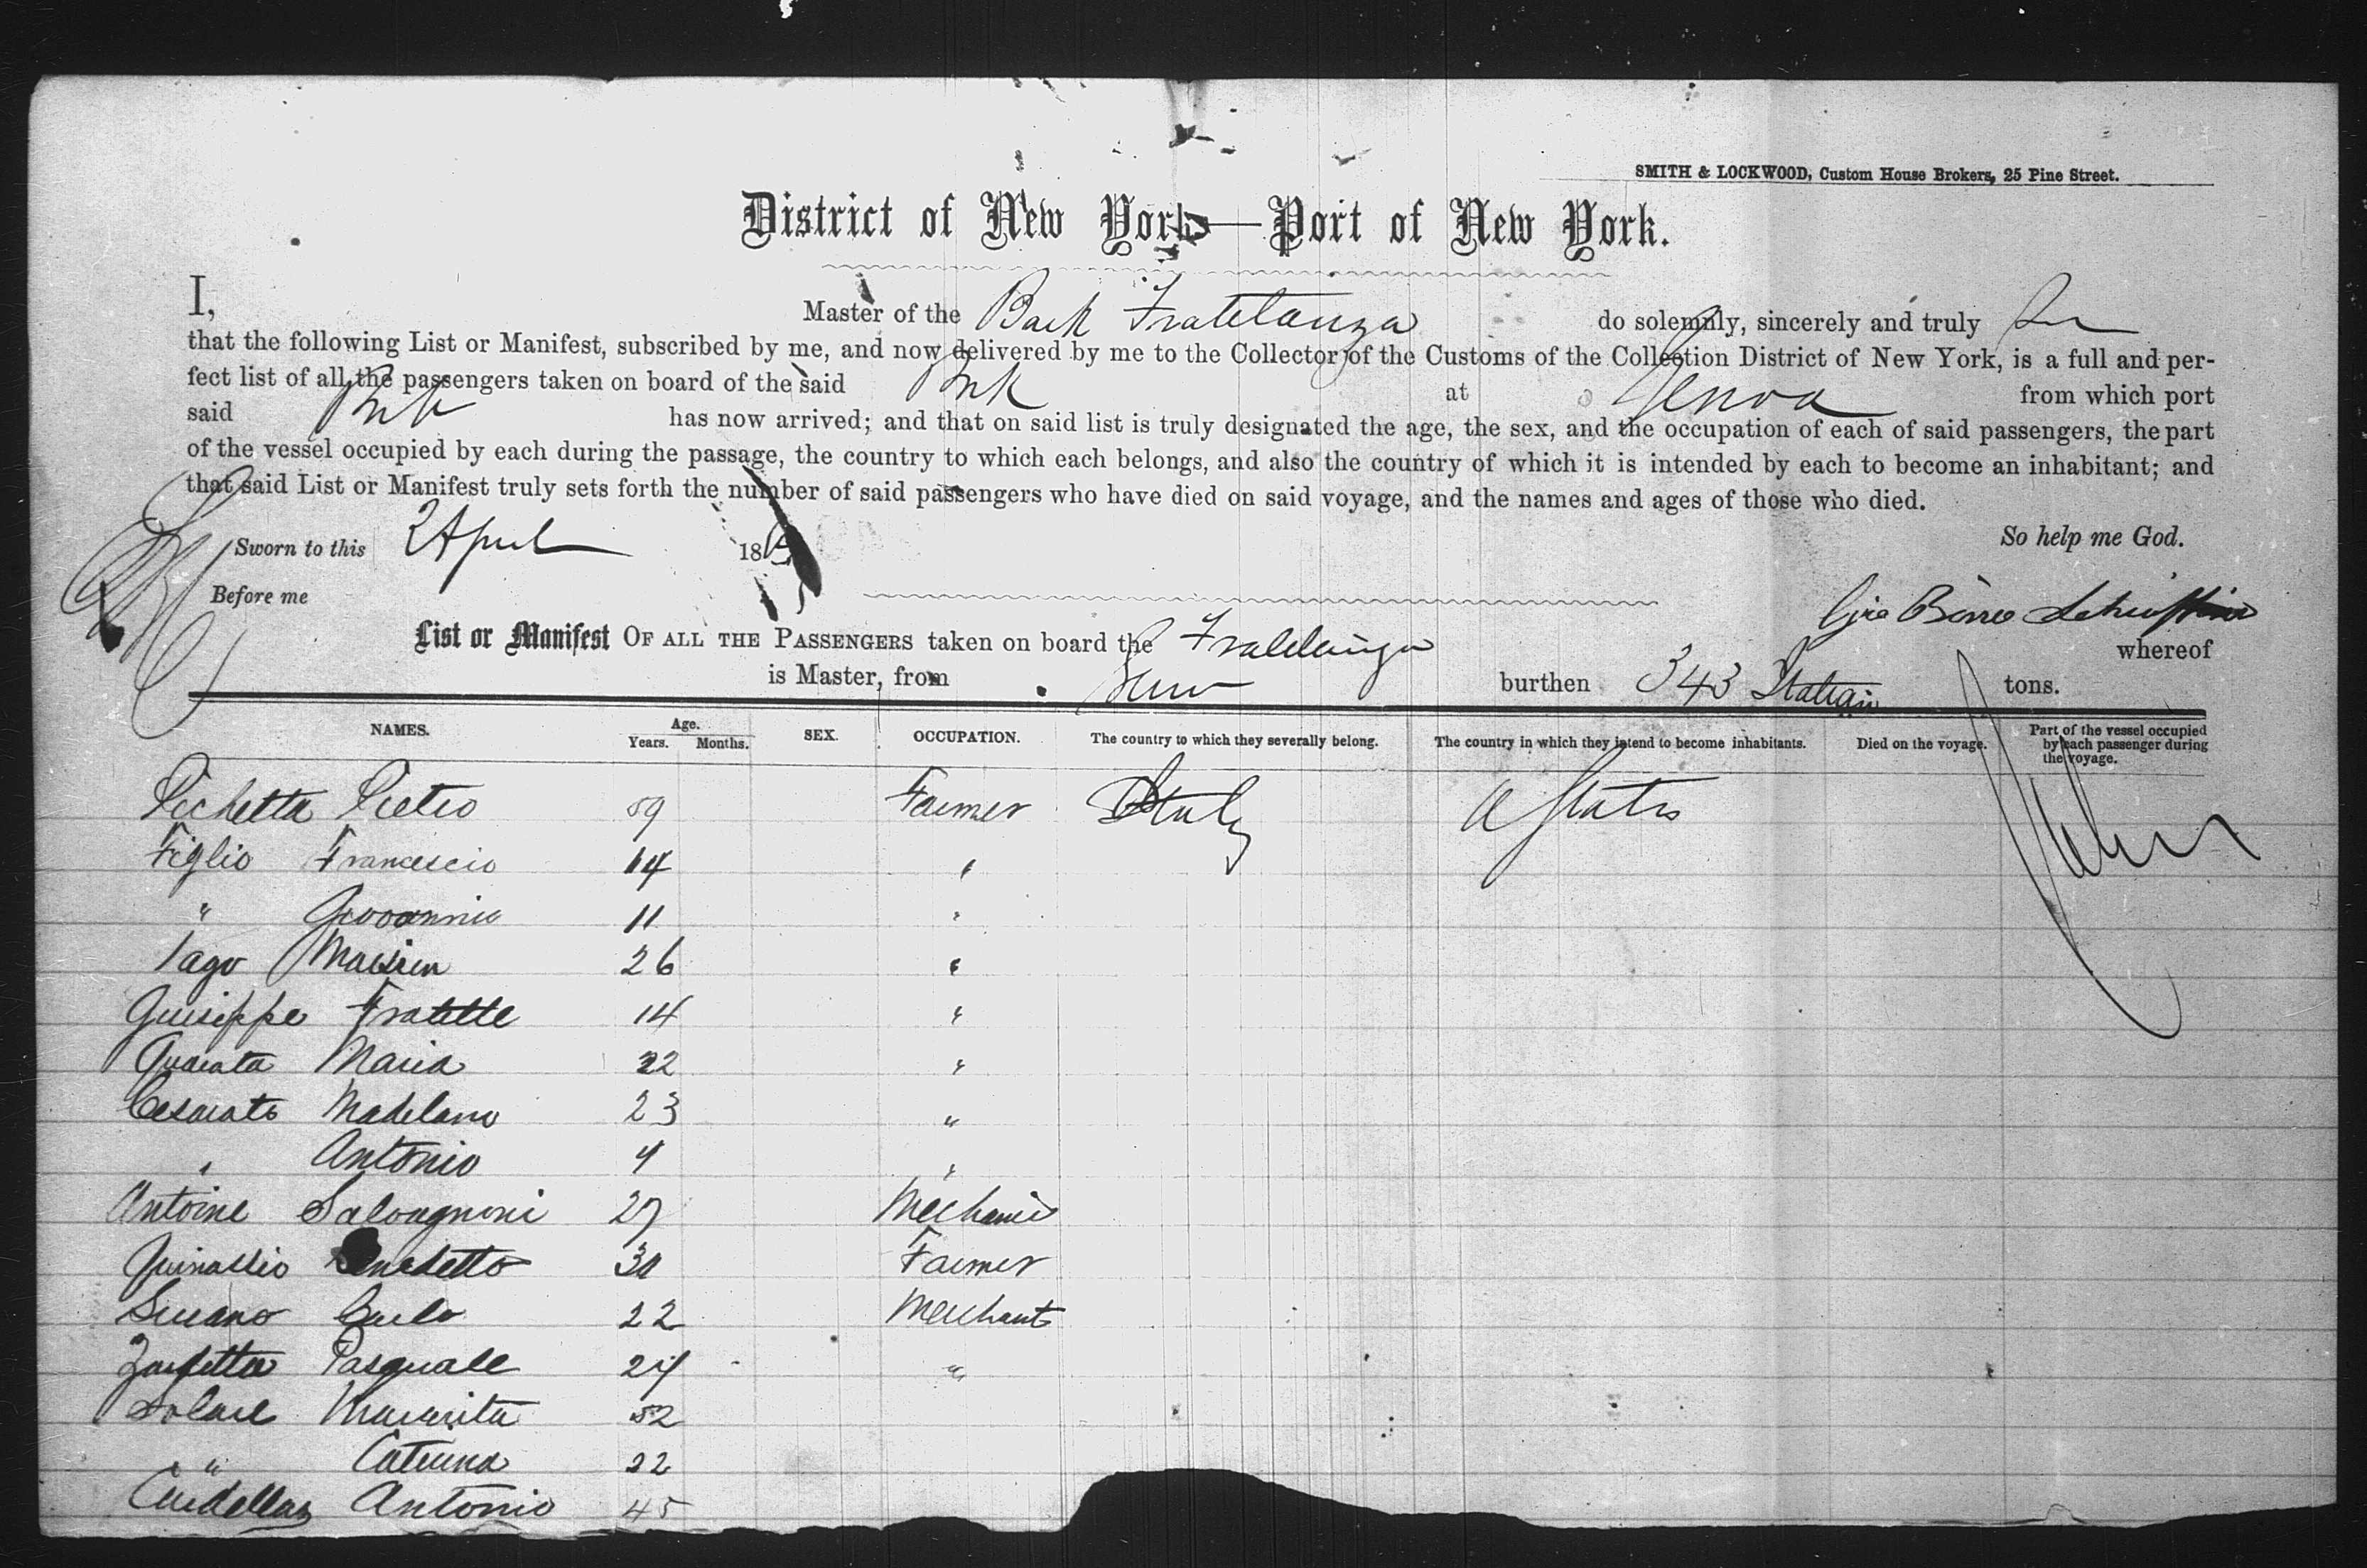 SMITH & LOCKWOOD, Custom House Brokers, 25 Pine Street.
District of New York—Port of New York.
I, Master of the Bark Fratelanza do solemnly, sincerely and truly
that the following List or Manifest, subscribed by me, and now delivered by me to the Collector of the Customs of the Collection District of New York, is a full and per-
fect list of all the passengers taken on board of the said Bark at Genoa from which port
said Bark has now arrived; and that on said list is truly designated the age, the sex, and the occupation of each of said passengers, the part
of the vessel occupied by each during the passage, the country to which each belongs, and also the country of which it is intended by each to become an inhabitant; and
that said List or Manifest truly sets forth the number of said passengers who have died on said voyage, and the names and ages of those who died.
So help me God.
Sworn to this 2 April 18
Before me
List or Manifest OF ALL THE PASSENGERS taken on board the Fratelanza whereof
is Master, from burthen 343 Italian tons.
NAMES. Age. Years. Months. SEX. OCCUPATION. The country to which they severally belong. The country in which they intend to become inhabitants. Died on the voyage. Part of the vessel occupied by each passenger during the voyage.
Pichetta Pietro 59 Farmer Italy U States
Figlio Francescio 14 "
" Giovannia 11 "
Iago 26 "
Guiseppe Fratelle 14 "
Quarata Maria 22 "
Cesarato Madelano 23 "
" Antonio 4 "
Antoine Salvagnoni 27 Mechanic
Benedetto 30 Farmer
Carlo 22 Merchant
Pasquale 24 "
Solare 52
" Caterina 22
Antonio 45